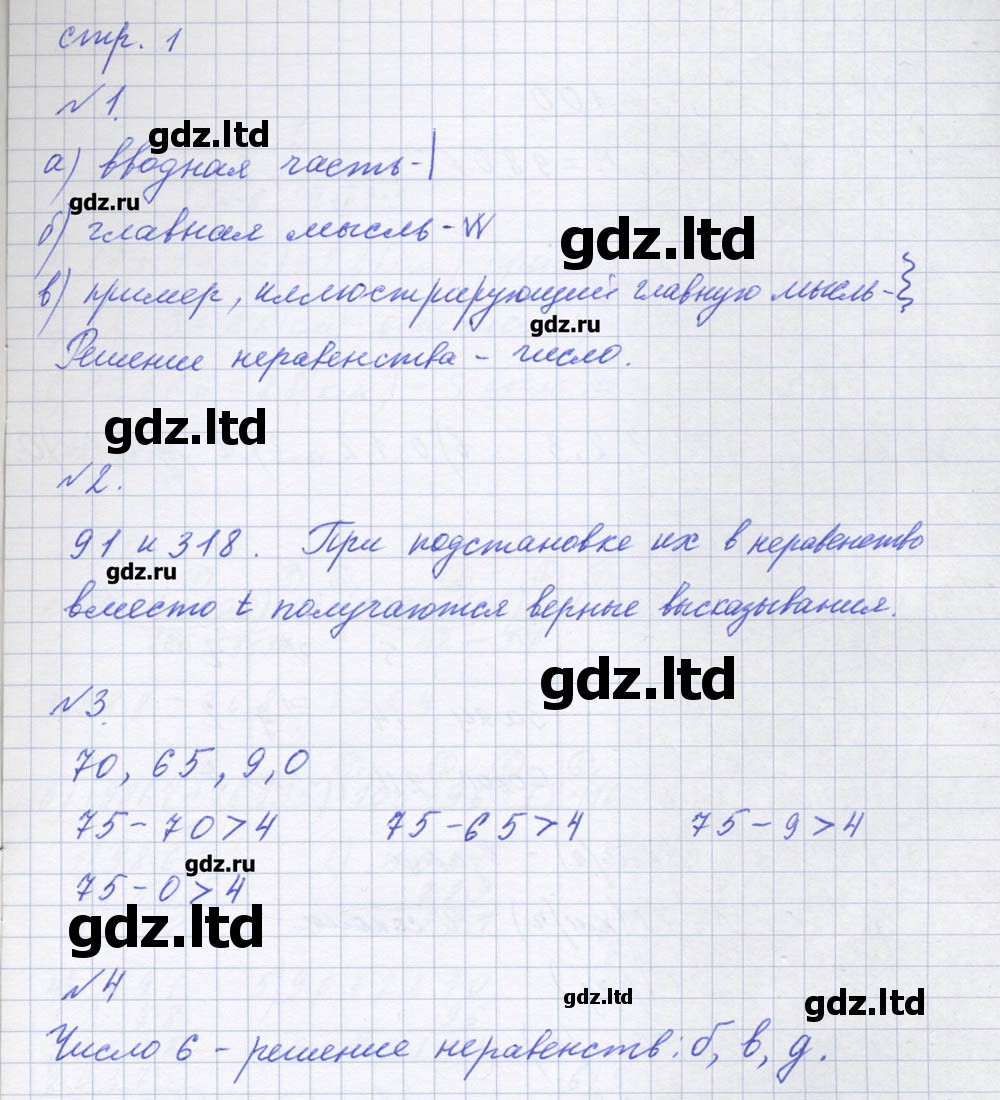 стр. 1
№1.
gdz.ltd
а) вводная часть - |
gdz.ru
б) главная мысль - W
gdz.ltd
в) пример, иллюстрирующий главную мысль - }
gdz.ru
Решение неравенства - число.
gdz.ltd
№2.
91 и 318. При подстановке их в неравенство
gdz.ru
вместо t получаются верные высказывания.
gdz.ltd
№3.
70, 65, 9, 0
75 - 70 > 4 75 - 65 > 4 75 - 9 > 4
gdz.ru
75 - 0 > 4
gdz.ltd
№4
gdz.ltd
gdz.ltd
Число 6 - решение неравенств: б, в, д.